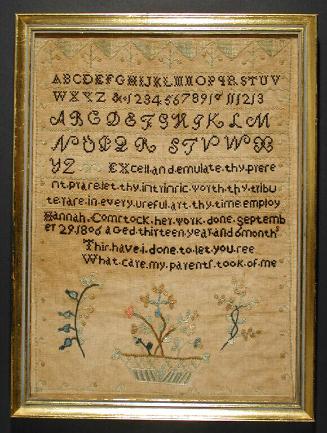 ABCDEFGHIJKLMNOPQRSTUV
WXYZ & 1234567891011 1213
ABCDEFGHIJKLM
NOPQR STVWX
YZ Excell and emulate thy prese
nt praise let thy intrinsic worth thy tribu
te raise in every useful art thy time employ
Hannah Comstock her work done Septemb
er 29 1806 aged thirteen year and 6 month
This have i done to let you see
What care my parents took of me